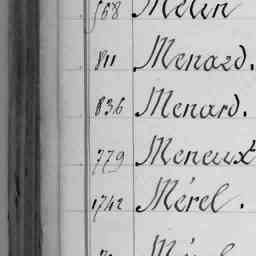 568 Melin
811 Menard.
836 Menard.
779 Meneux
1742 Mérel.